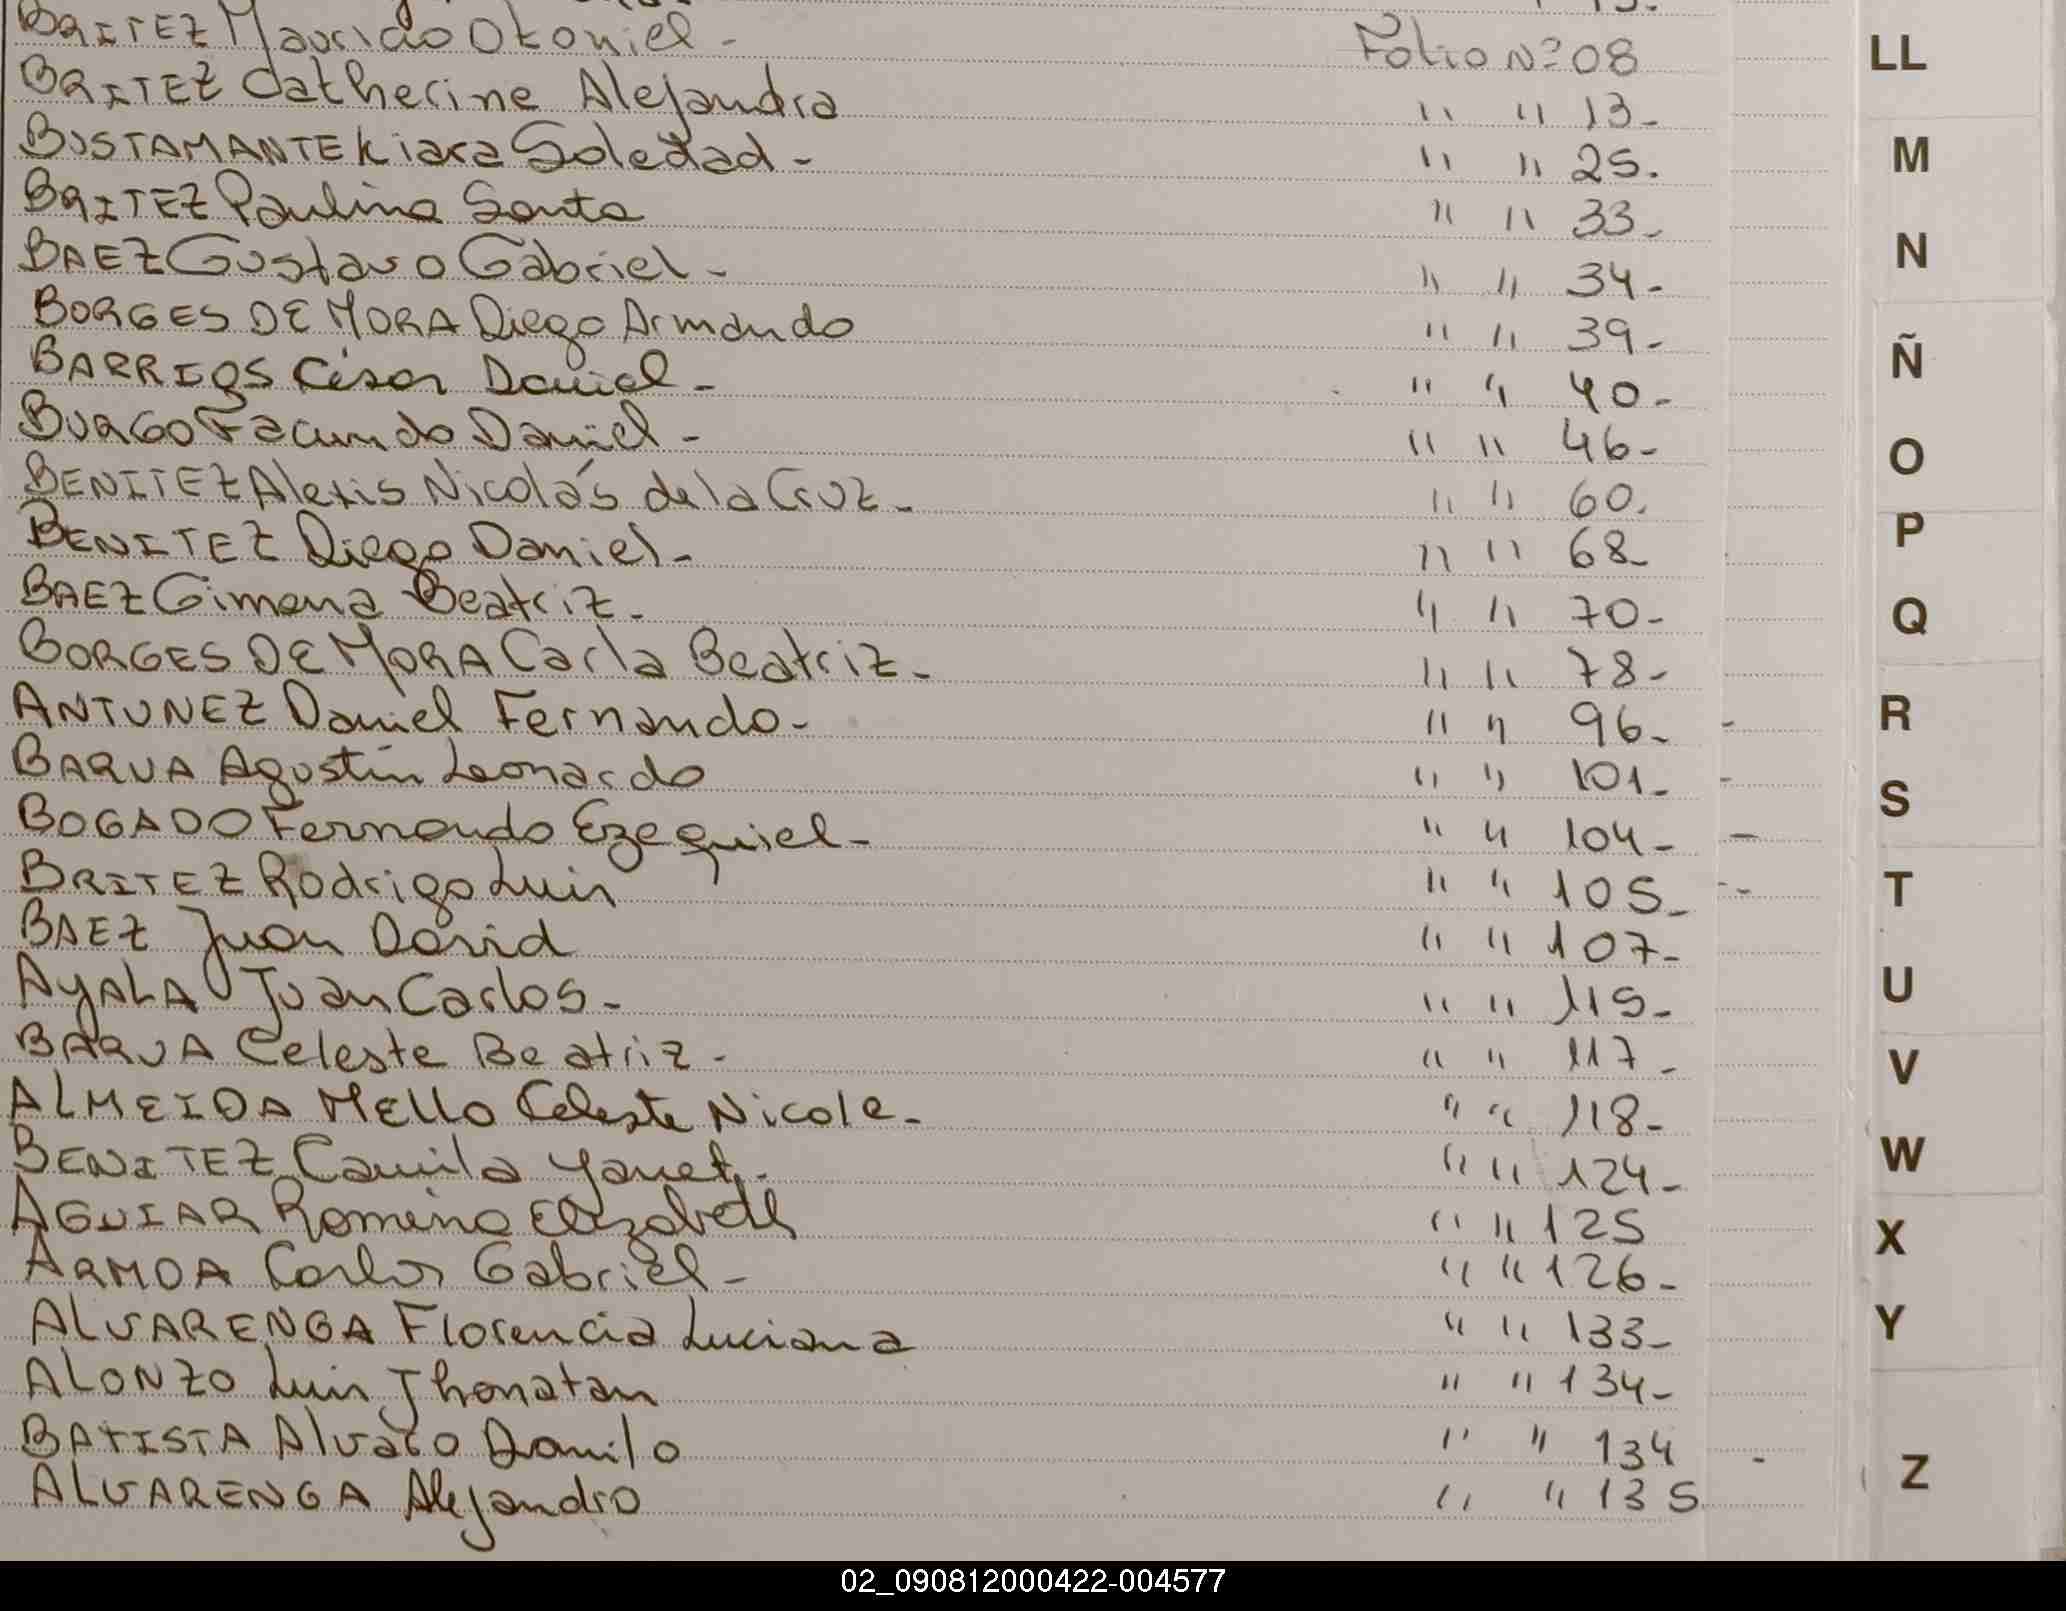 BRITEZ Mauricio Otoniel - Folio Nº 08
BRITEZ Catherine Alejandra " " 13-
BUSTAMANTE Kiara Soledad - " " 25.
BRITEZ Paulina Santa " " 33-
BAEZ Gustavo Gabriel - " " 34-
BORGES DE MORA Diego Armando " " 39-
BARRIOS César Daniel - " " 40-
BURGO Facundo Daniel - " " 46-
BENITEZ Alexis Nicolás de la Cruz - " " 60.
BENITEZ Diego Daniel - " " 68-
BAEZ Gimena Beatriz - " " 70-
BORGES DE MORA Carla Beatriz - " " 78-
ANTUNEZ Daniel Fernando - " " 96-
BARUA Agustín Leonardo " " 101-
BOGADO Fernando Ezequiel - " " 104-
BRITEZ Rodrigo Luis " " 105-
BAEZ Juan David " " 107-
AYALA Juan Carlos - " " 115-
BARUA Celeste Beatriz - " " 117-
ALMEIDA MELLO Celeste Nicole - " " 118-
BENITEZ Camila Yanet - " " 124-
AGUIAR Romina Elizabeth " " 125
ARMOA Carlos Gabriel - " " 126-
ALVARENGA Florencia Luciana " " 133-
ALONZO Luis Jhonatan " " 134-
BATISTA Alvaro Danilo " " 134
ALVARENGA Alejandro " " 135
LL
M
N
Ñ
O
P
Q
R
S
T
U
V
W
X
Y
Z
02_090812000422-004577